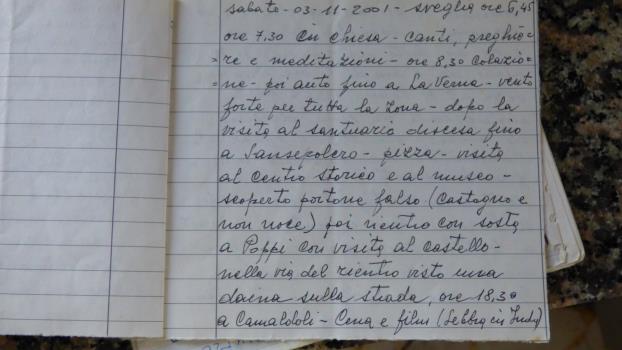 sabato - 03-11-2001 - sveglia ore 6,45
ore 7,30 in chiesa - canti, preghie=
re e meditazioni - ore 8,30 colazio=
=ne - poi auto fino a La Verna - vento
forte per tutta la zona - dopo la
visita al santuario discesa fino
a Sansepolcro - pizza - visita
al centro storico e al museo -
scoperto portone falso (castagno e
non noce) poi rientro con sosta
a Poppi con visita al castello -
nella via del rientro visto una
daina sulla strada, ore 18,30
a Camaldoli - Cena e film (Lebbra in